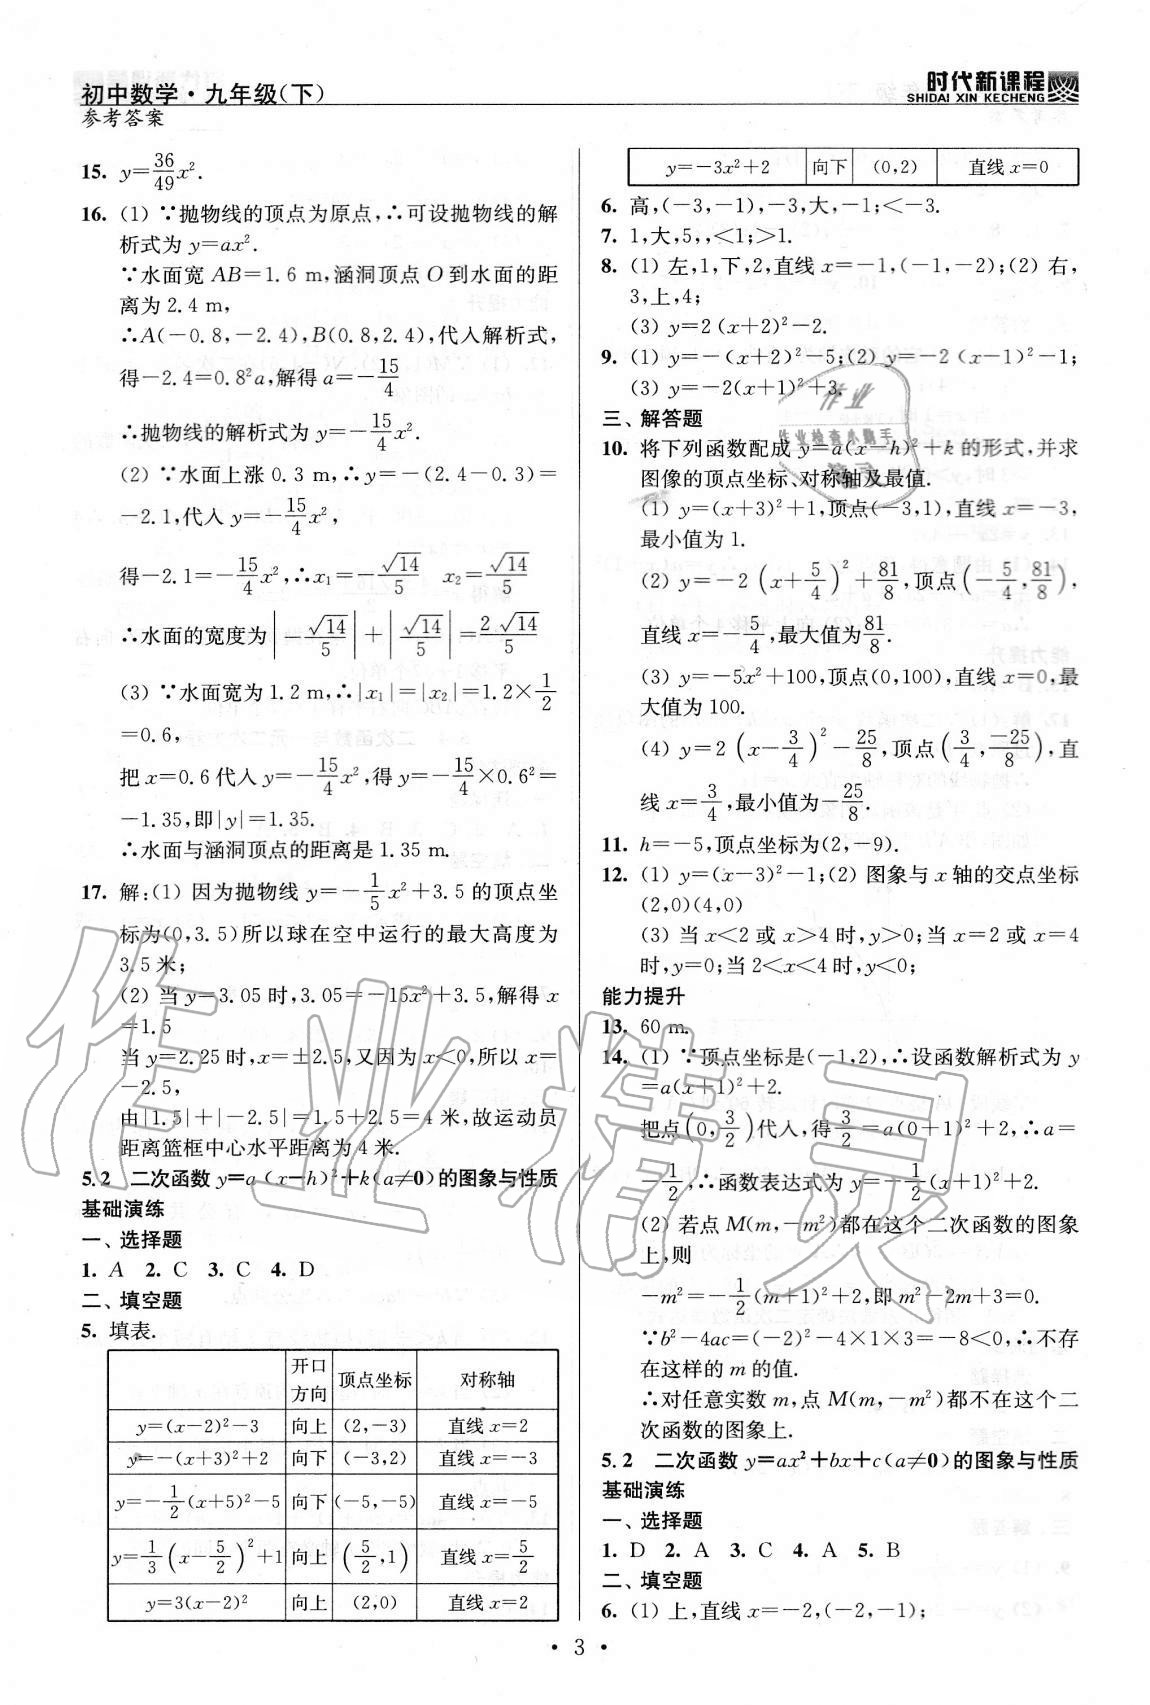 初中数学·九年级(下)
参考答案
时代新课程
SHIDAI XIN KECHENG
15. y=36/49x².
16. (1) ∵抛物线的顶点为原点,∴可设抛物线的解
析式为 y=ax².
∵水面宽 AB=1.6 m,涵洞顶点 O 到水面的距
离为 2.4 m,
∴A(-0.8,-2.4),B(0.8,2.4),代入解析式,
得-2.4=0.8²a,解得 a=-15/4
∴抛物线的解析式为 y=-15/4x².
(2) ∵水面上涨 0.3 m,∴y=-(2.4-0.3)=
-2.1,代入 y=-15/4x²,
得-2.1=-15/4x²,∴x₁=-√14/5 x₂=√14/5
∴水面的宽度为|-√14/5|+|√14/5|=2√14/5
(3) ∵水面宽为 1.2 m,∴|x₁|=|x₂|=1.2×1/2
=0.6,
把 x=0.6 代入 y=-15/4x²,得 y=-15/4×0.6²=
-1.35,即|y|=1.35.
∴水面与涵洞顶点的距离是 1.35 m.
17. 解:(1) 因为抛物线 y=-1/5x²+3.5 的顶点坐
标为(0,3.5)所以球在空中运行的最大高度为
3.5 米;
(2) 当 y=3.05 时,3.05=-15x²+3.5,解得 x
=1.5
当 y=2.25 时,x=±2.5,又因为 x<0,所以 x=
-2.5,
由|1.5|+|-2.5|=1.5+2.5=4 米,故运动员
距离篮框中心水平距离为 4 米.
5.2 二次函数 y=a(x-h)²+k(a≠0)的图象与性质
基础演练
一、选择题
1. A 2. C 3. C 4. D
二、填空题
5. 填表.
开口方向 顶点坐标 对称轴
y=(x-2)²-3 向上 (2,-3) 直线 x=2
y=-(x+3)²+2 向下 (-3,2) 直线 x=-3
y=-1/2(x+5)²-5 向下 (-5,-5) 直线 x=-5
y=1/3(x-5/2)²+1 向上 (5/2,1) 直线 x=5/2
y=3(x-2)² 向上 (2,0) 直线 x=2
y=-3x²+2 向下 (0,2) 直线 x=0
6. 高,(-3,-1),-3,大,-1;<-3.
7. 1,大,5,,<1;>1.
8. (1) 左,1,下,2,直线 x=-1,(-1,-2);(2) 右,
3,上,4;
(3) y=2(x+2)²-2.
9. (1) y=-(x+2)²-5;(2) y=-2(x-1)²-1;
(3) y=-2(x+1)²+3.
三、解答题
10. 将下列函数配成 y=a(x-h)²+k 的形式,并求
图像的顶点坐标、对称轴及最值.
(1) y=(x+3)²+1,顶点(-3,1),直线 x=-3,
最小值为 1.
(2) y=-2(x+5/4)²+81/8,顶点(-5/4,81/8),
直线 x=-5/4,最大值为81/8.
(3) y=-5x²+100,顶点(0,100),直线 x=0,最
大值为 100.
(4) y=2(x-3/4)²-25/8,顶点(3/4,-25/8),直
线 x=3/4,最小值为-25/8.
11. h=-5,顶点坐标为(2,-9).
12. (1) y=(x-3)²-1;(2) 图象与 x 轴的交点坐标
(2,0)(4,0)
(3) 当 x<2 或 x>4 时,y>0;当 x=2 或 x=4
时,y=0;当 2<x<4 时,y<0;
能力提升
13. 60 m.
14. (1) ∵顶点坐标是(-1,2),∴设函数解析式为 y
=a(x+1)²+2.
把点(0,3/2)代入,得3/2=a(0+1)²+2,∴a=
-1/2,∴函数表达式为 y=-1/2(x+1)²+2.
(2) 若点 M(m,-m²)都在这个二次函数的图象
上,则
-m²=-1/2(m+1)²+2,即 m²-2m+3=0.
∵b²-4ac=(-2)²-4×1×3=-8<0,∴不存
在这样的 m 的值.
∴对任意实数 m,点 M(m,-m²)都不在这个二
次函数的图象上.
5.2 二次函数 y=ax²+bx+c(a≠0)的图象与性质
基础演练
一、选择题
1. D 2. A 3. C 4. A 5. B
二、填空题
6. (1) 上,直线 x=-2,(-2,-1);
• 3 •
作业精灵
作业
作业检查小助手